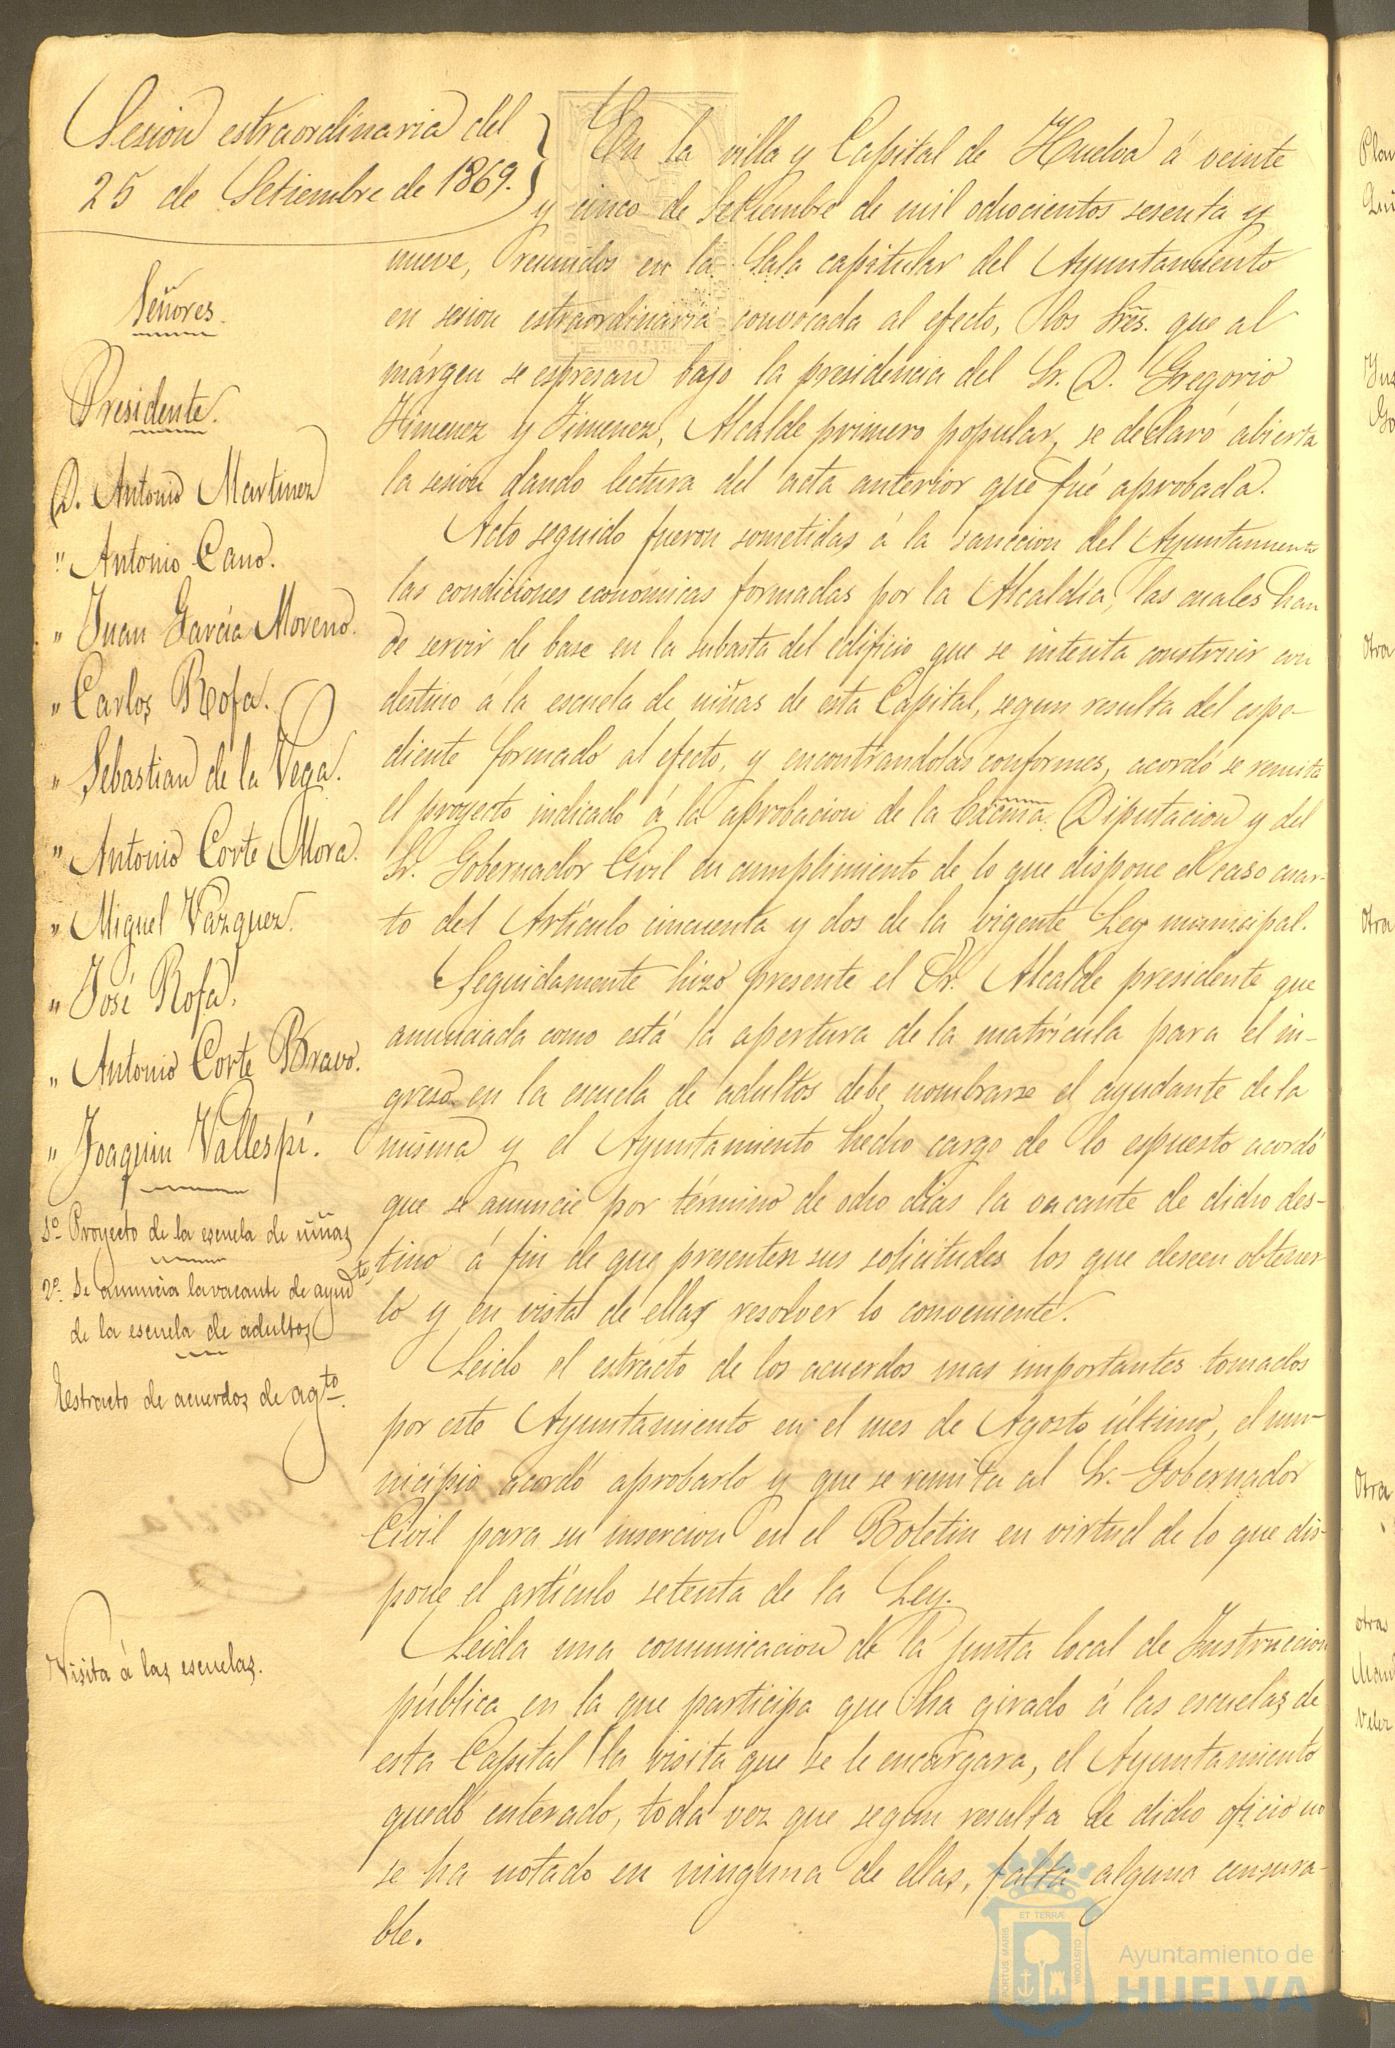 Sesion estraordinaria del
25 de Setiembre de 1869.
Señores.
Presidente.
D. Antonio Martinez
" Antonio Cano.
" Juan García Moreno.
" Carlos Rofa.
" Sebastian de la Vega.
" Antonio Corte Mora.
" Miguel Vazquez.
" José Rofa.
" Antonio Corte Bravo.
" Joaquin Vallespí.
1º Proyecto de la escuela de niñas
2º Se anuncia la vacante de ayudte
de la escuela de adultos
Estracto de acuerdos de agto.
Visita á las escuelas.
En la villa y Capital de Huelva á veinte
y cinco de Setiembre de mil ochocientos sesenta y
nueve, reunidos en la Sala capitular del Ayuntamiento
en sesion estraordinaria convocada al efecto, los Sres. que al
márgen se espresan bajo la presidencia del Sr. D. Gregorio
Jimenez y Jimenez, Alcalde primero popular, se declaró abierta
la sesion dando lectura del acta anterior que fué aprobada.
Acto seguido fueron sometidas á la sancion del Ayuntamiento
las condiciones económicas formadas por la Alcaldía, las cuales han
de servir de base en la subasta del edificio que se intenta construir con
destino á la escuela de niñas de esta Capital, segun resulta del espe-
diente formado al efecto, y encontrandolas conformes, acordó se remita
el proyecto indicado á la aprobacion de la Excma. Diputacion y del
Sr. Gobernador Civil en cumplimiento de lo que dispone el caso cuar-
to del Artículo cincuenta y dos de la vigente Ley municipal.
Seguidamente hizo presente el Sr. Alcalde presidente que
anunciada como está la apertura de la matrícula para el in-
greso en la escuela de adultos debe nombrarse el ayudante de la
misma y el Ayuntamiento hecho cargo de lo espuesto acordó
que se anuncie por término de ocho dias la vacante de dicho des-
tino á fin de que presenten sus solicitudes los que deseen obtener
lo y en vista de ellas resolver lo conveniente.
Leido el estracto de los acuerdos mas importantes tomados
por este Ayuntamiento en el mes de Agosto último, el mu-
nicipio acordó aprobarlo y que se remita al Sr. Gobernador
Civil para su insercion en el Boletin en virtud de lo que dis-
pone el artículo setenta de la Ley.
Leida una comunicacion de la junta local de Instruccion
pública en la que participa que ha girado á las escuelas de
esta Capital la visita que se le encargara, el Ayuntamiento
quedó enterado, toda vez que segun resulta de dicho oficio no
se ha notado en ninguna de ellas, falta alguna censura-
ble.
Otra
Otra
Otra
otras
Velez
PORTUS MARIS
ET TERRÆ
CUSTODIA
Ayuntamiento de
HUELVA